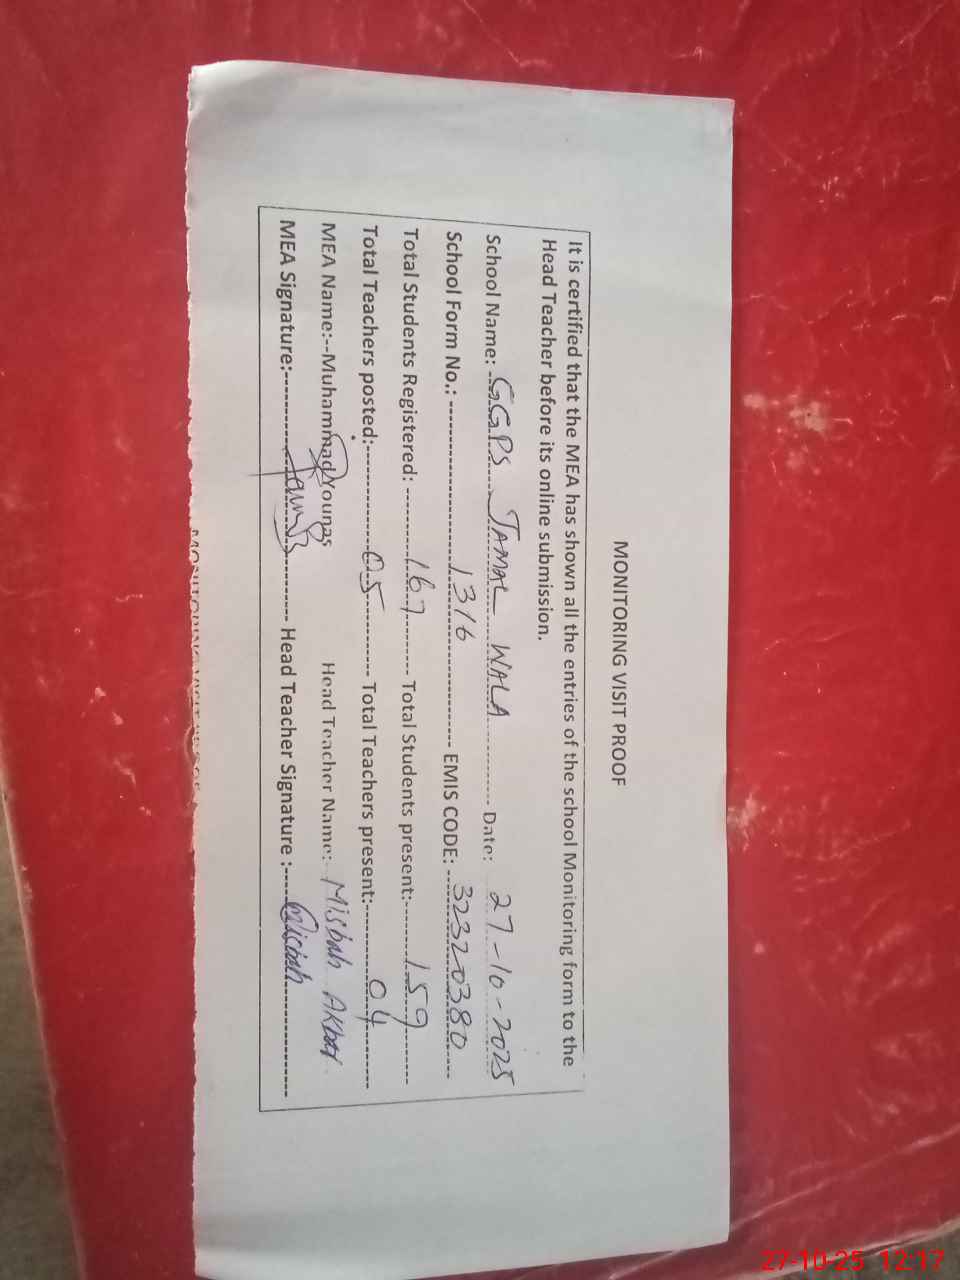 MONITORING VISIT PROOF
It is certified that the MEA has shown all the entries of the school Monitoring form to the
Head Teacher before its online submission.
School Name: GGPS JAMAL WALA Date: 27-10-2025
School Form No.: 1316 EMIS CODE: 32320380
Total Students Registered: 167 Total Students present: 159
Total Teachers posted: 05 Total Teachers present: 04
MEA Name:--Muhammad Younas Head Teacher Name: Misbah Akbar
MEA Signature: Head Teacher Signature : Misbah
MONITORING VISIT PROOF
27-10-25 12:17